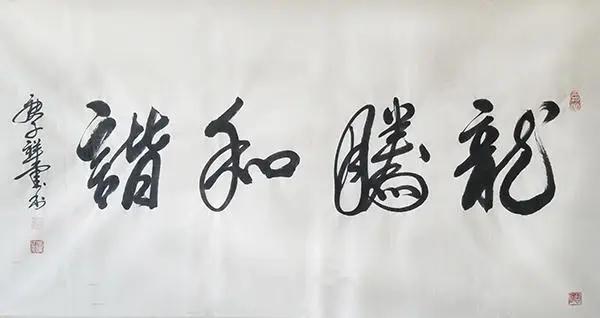 龍騰和諧
庚子